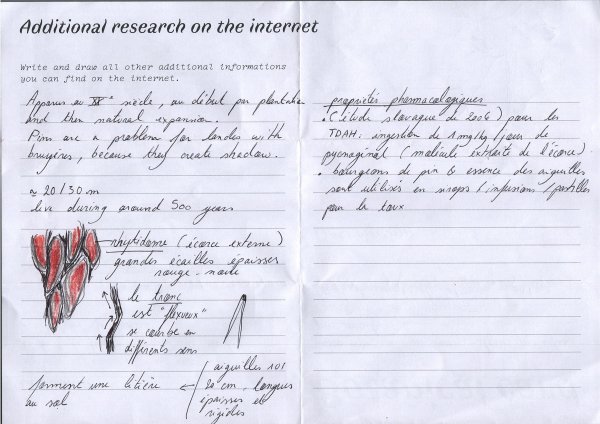 Additional research on the internet
Write and draw all other additional informations
you can find on the internet.
Apparus au XIXe siècle, au début par plantation
and then natural expansion.
Pins are a problem for landes with
bruyères, because they create shadow.
≈ 20/30 m
live during around 500 years
rhytidome (écorce externe)
grandes écailles épaisses
rouge-noire
le tronc
est "flexueux"
se courbe en
différents sens
aiguilles 10/
20 cm, longues
épaisses et
rigides
forment une litière
au sol
propriétés pharmacologiques
• (étude slovaque de 2006) pour les
TDAH: ingestion de 1 mg/kg/jour de
pycnogénol (molécule extraite de l'écorce)
• bourgeons de pin & essence des aiguilles
sont utilisés en sirops/infusions/pastilles
pour la toux